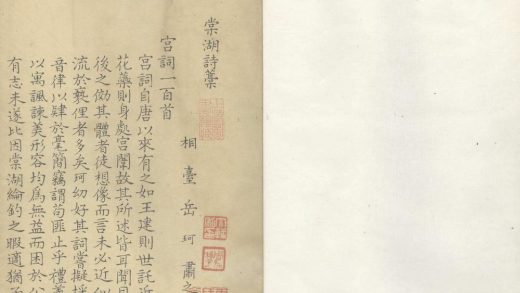 棠湖詩藁
相臺岳珂肅之
宮詞一百首
宮詞自唐以來有之如王建則世託近
花蘂則身處宮閫故其所述皆耳聞目
後之倣其體者徒想像而言未必近似
流於褻俚者多矣珂幼好其詞嘗擬
音律以肆於毫簡竊謂苟匪止乎禮義
以寓諷諫美形容均爲無益而因於公
有志未遂比因棠湖綸釣之暇適猶子